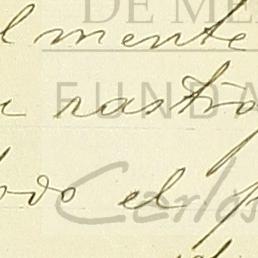 DE ME
lmente
FUNDA
rastro
odo el
Carlos